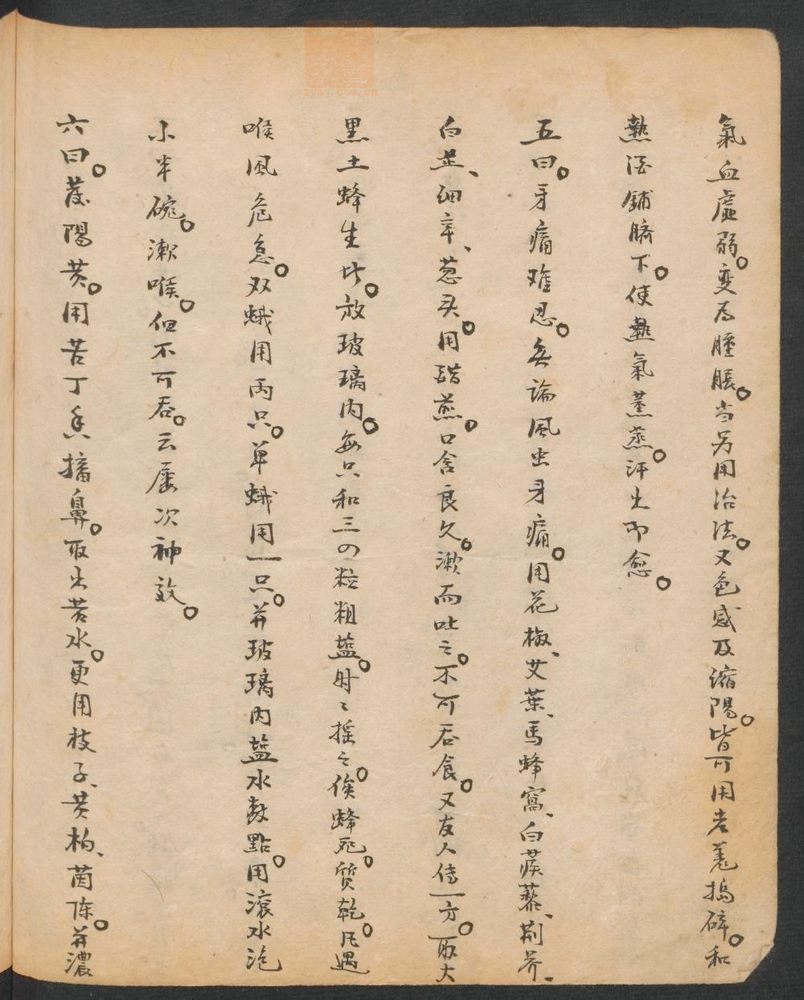 氣血虛弱。變为腫脹。当另用治法。又色感及缩陽。皆可用老羌搗碎。和
熱酒鋪臍下。使熱氣薰蒸。汗出即愈。
五曰。牙痛难忍。無論風虫牙痛。用花椒、艾葉、馬蜂窩、白蒺藜、荆芥、
白芷、细辛、葱头。用醋煎。口含良久。漱而吐之。不可吞食。又友人傳一方。取大
黑土蜂生叱。放玻璃内。每只和三四粒粗盐。時々摇之。俟蜂死。质乾。凡遇
喉風危急。双蛾用两只。单蛾用一只。并玻璃内盐水数點。用滾水泡
小半碗。漱喉。但不可吞。云屢次神效。
六曰。發陽黃。用苦丁香搐鼻。取出苦水。更用枝子、黄柏、茵陈。并濃